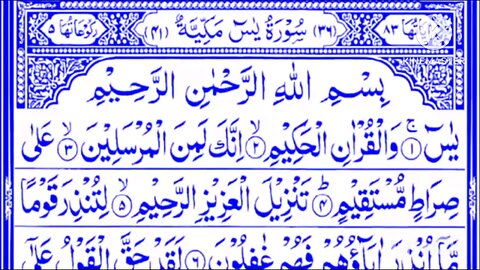 اٰيَاتُهَا ٨٣ (٣٦) سُوْرَةُ يٰسٓ مَكِّيَّةٌ (٤١) رُكُوْعَاتُهَا ٥
KINEMASTER
بِسْمِ اللّٰهِ الرَّحْمٰنِ الرَّحِيْمِ
يٰسٓ ۚ ﴿١﴾ وَالْقُرْاٰنِ الْحَكِيْمِ ۙ ﴿٢﴾ اِنَّكَ لَمِنَ الْمُرْسَلِيْنَ ۙ ﴿٣﴾ عَلٰى
صِرَاطٍ مُّسْتَقِيْمٍ ؕ ﴿٤﴾ تَنْزِيْلَ الْعَزِيْزِ الرَّحِيْمِ ۙ ﴿٥﴾ لِتُنْذِرَ قَوْمًا
مَّاۤ اُنْذِرَ اٰبَآؤُهُمْ فَهُمْ غٰفِلُوْنَ ﴿٦﴾ لَقَدْ حَقَّ الْقَوْلُ عَلٰۤى